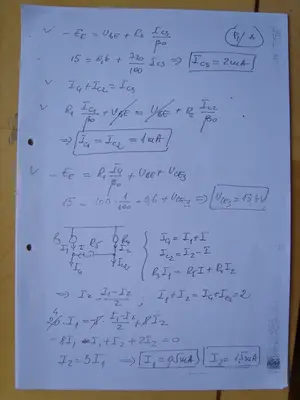 B/1
- E_E = U_BE + R_4 I_C3/β_0
15 = 0,6 + 720/100 I_C3 ⇒ I_C3 = 2mA
I_C1 + I_C2 = I_C3
R_1 I_C1/β_0 + U_BE = U_BE + R_2 I_C2/β_0
⇒ I_C1 = I_C2 = 1mA
- E_E = R_1 I_C1/β_0 + U_BE1 + U_CE3
15 - 100 · 1/100 - 0,6 + U_CE3 ⇒ U_CE3 = 13,4V
I_C1 = I_1 + I
I_C2 = I_2 - I
R_3 I_1 = R_5 I + R_3 I_2
⇒ I = (I_1 - I_2)/2 , I_1 + I_2 = I_C1 + I_C2 = 2
· I_1 = -8 · (I_1 - I_2)/2 + I_2
- 8I_1 · I_1 + I_2 + 2I_2 = 0
I_2 = 3I_1 ⇒ I_1 = 0,5mA I_2 = 1,5mA